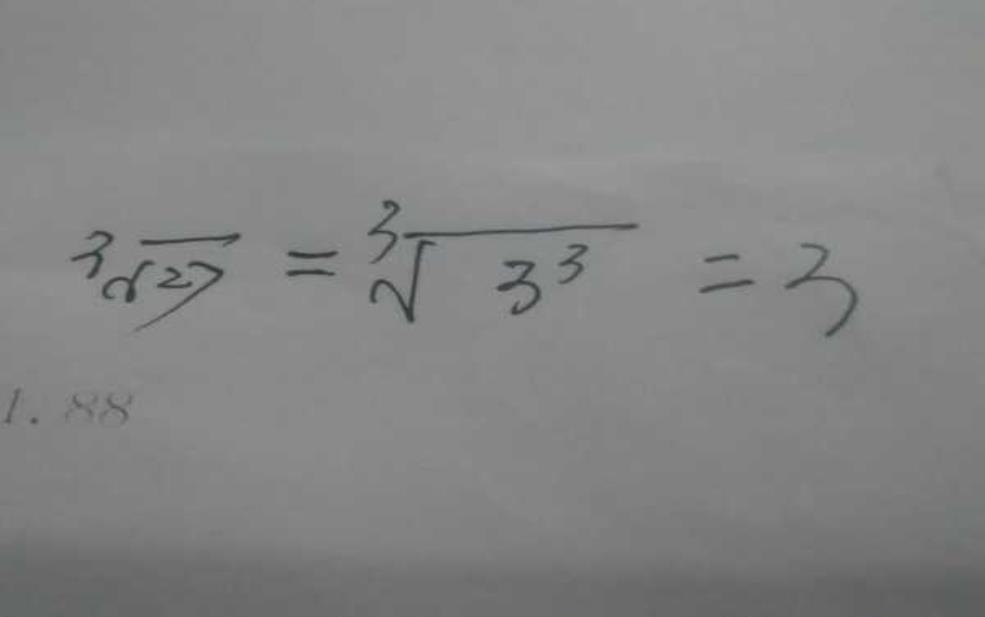 ∛27 = ∛3³ = 3
1.88